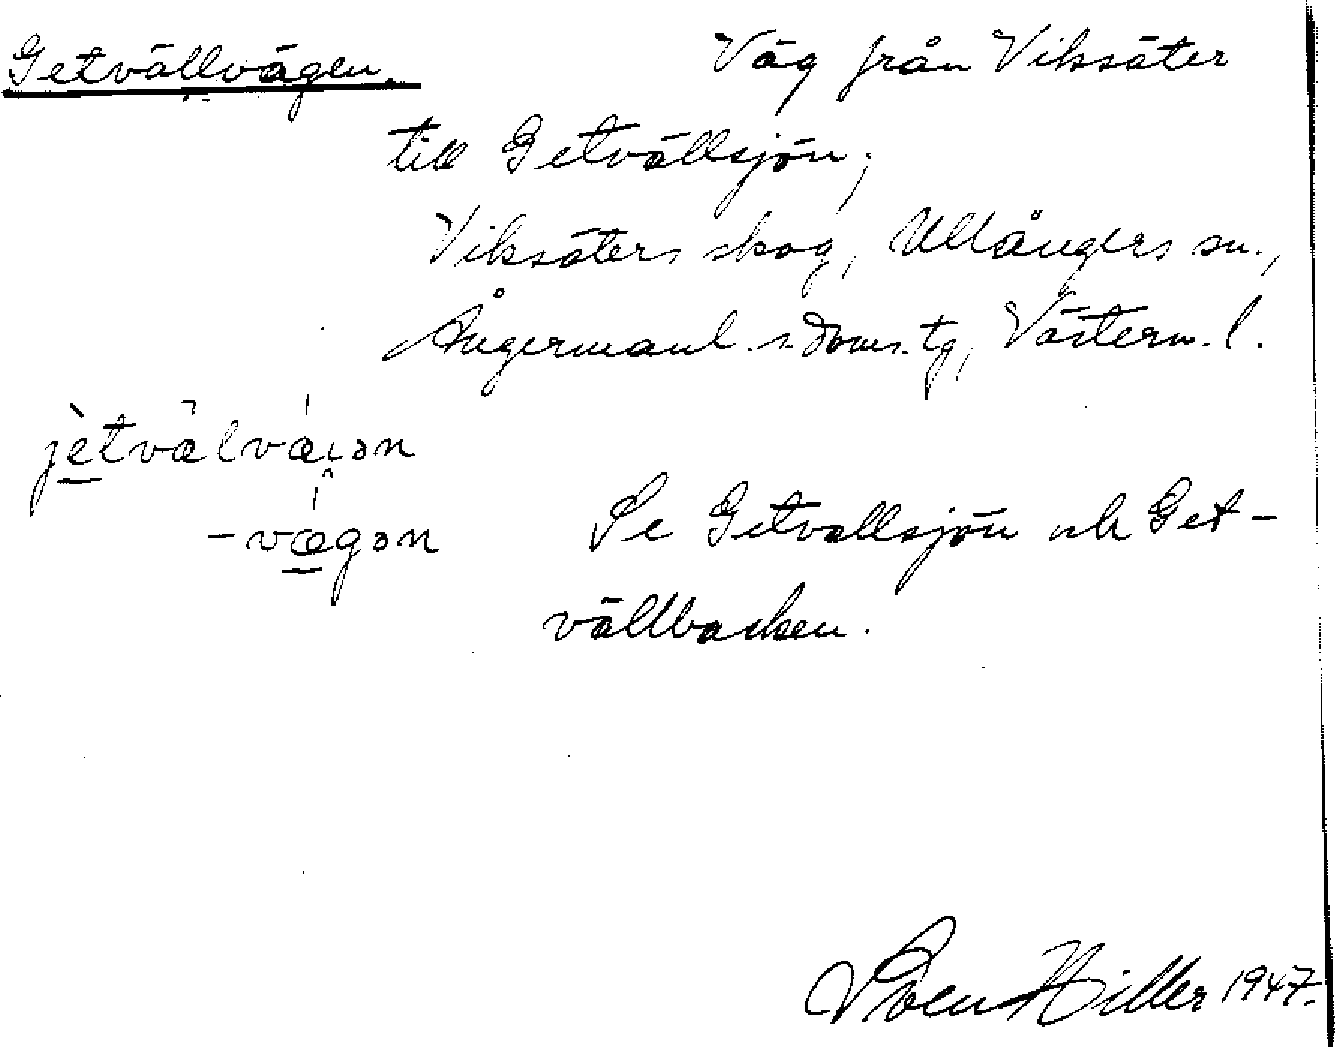 Getvällvägen. Väg från Viksäter
till Getvällsjön;
Viksäters skog, Ullångers sn.,
Ångermanl. s. doms. tg, Västern. l.
jètvälvæıən
-vægən Se Getvällsjön och Get-
vällbacken.
Sven Hiller 1947.